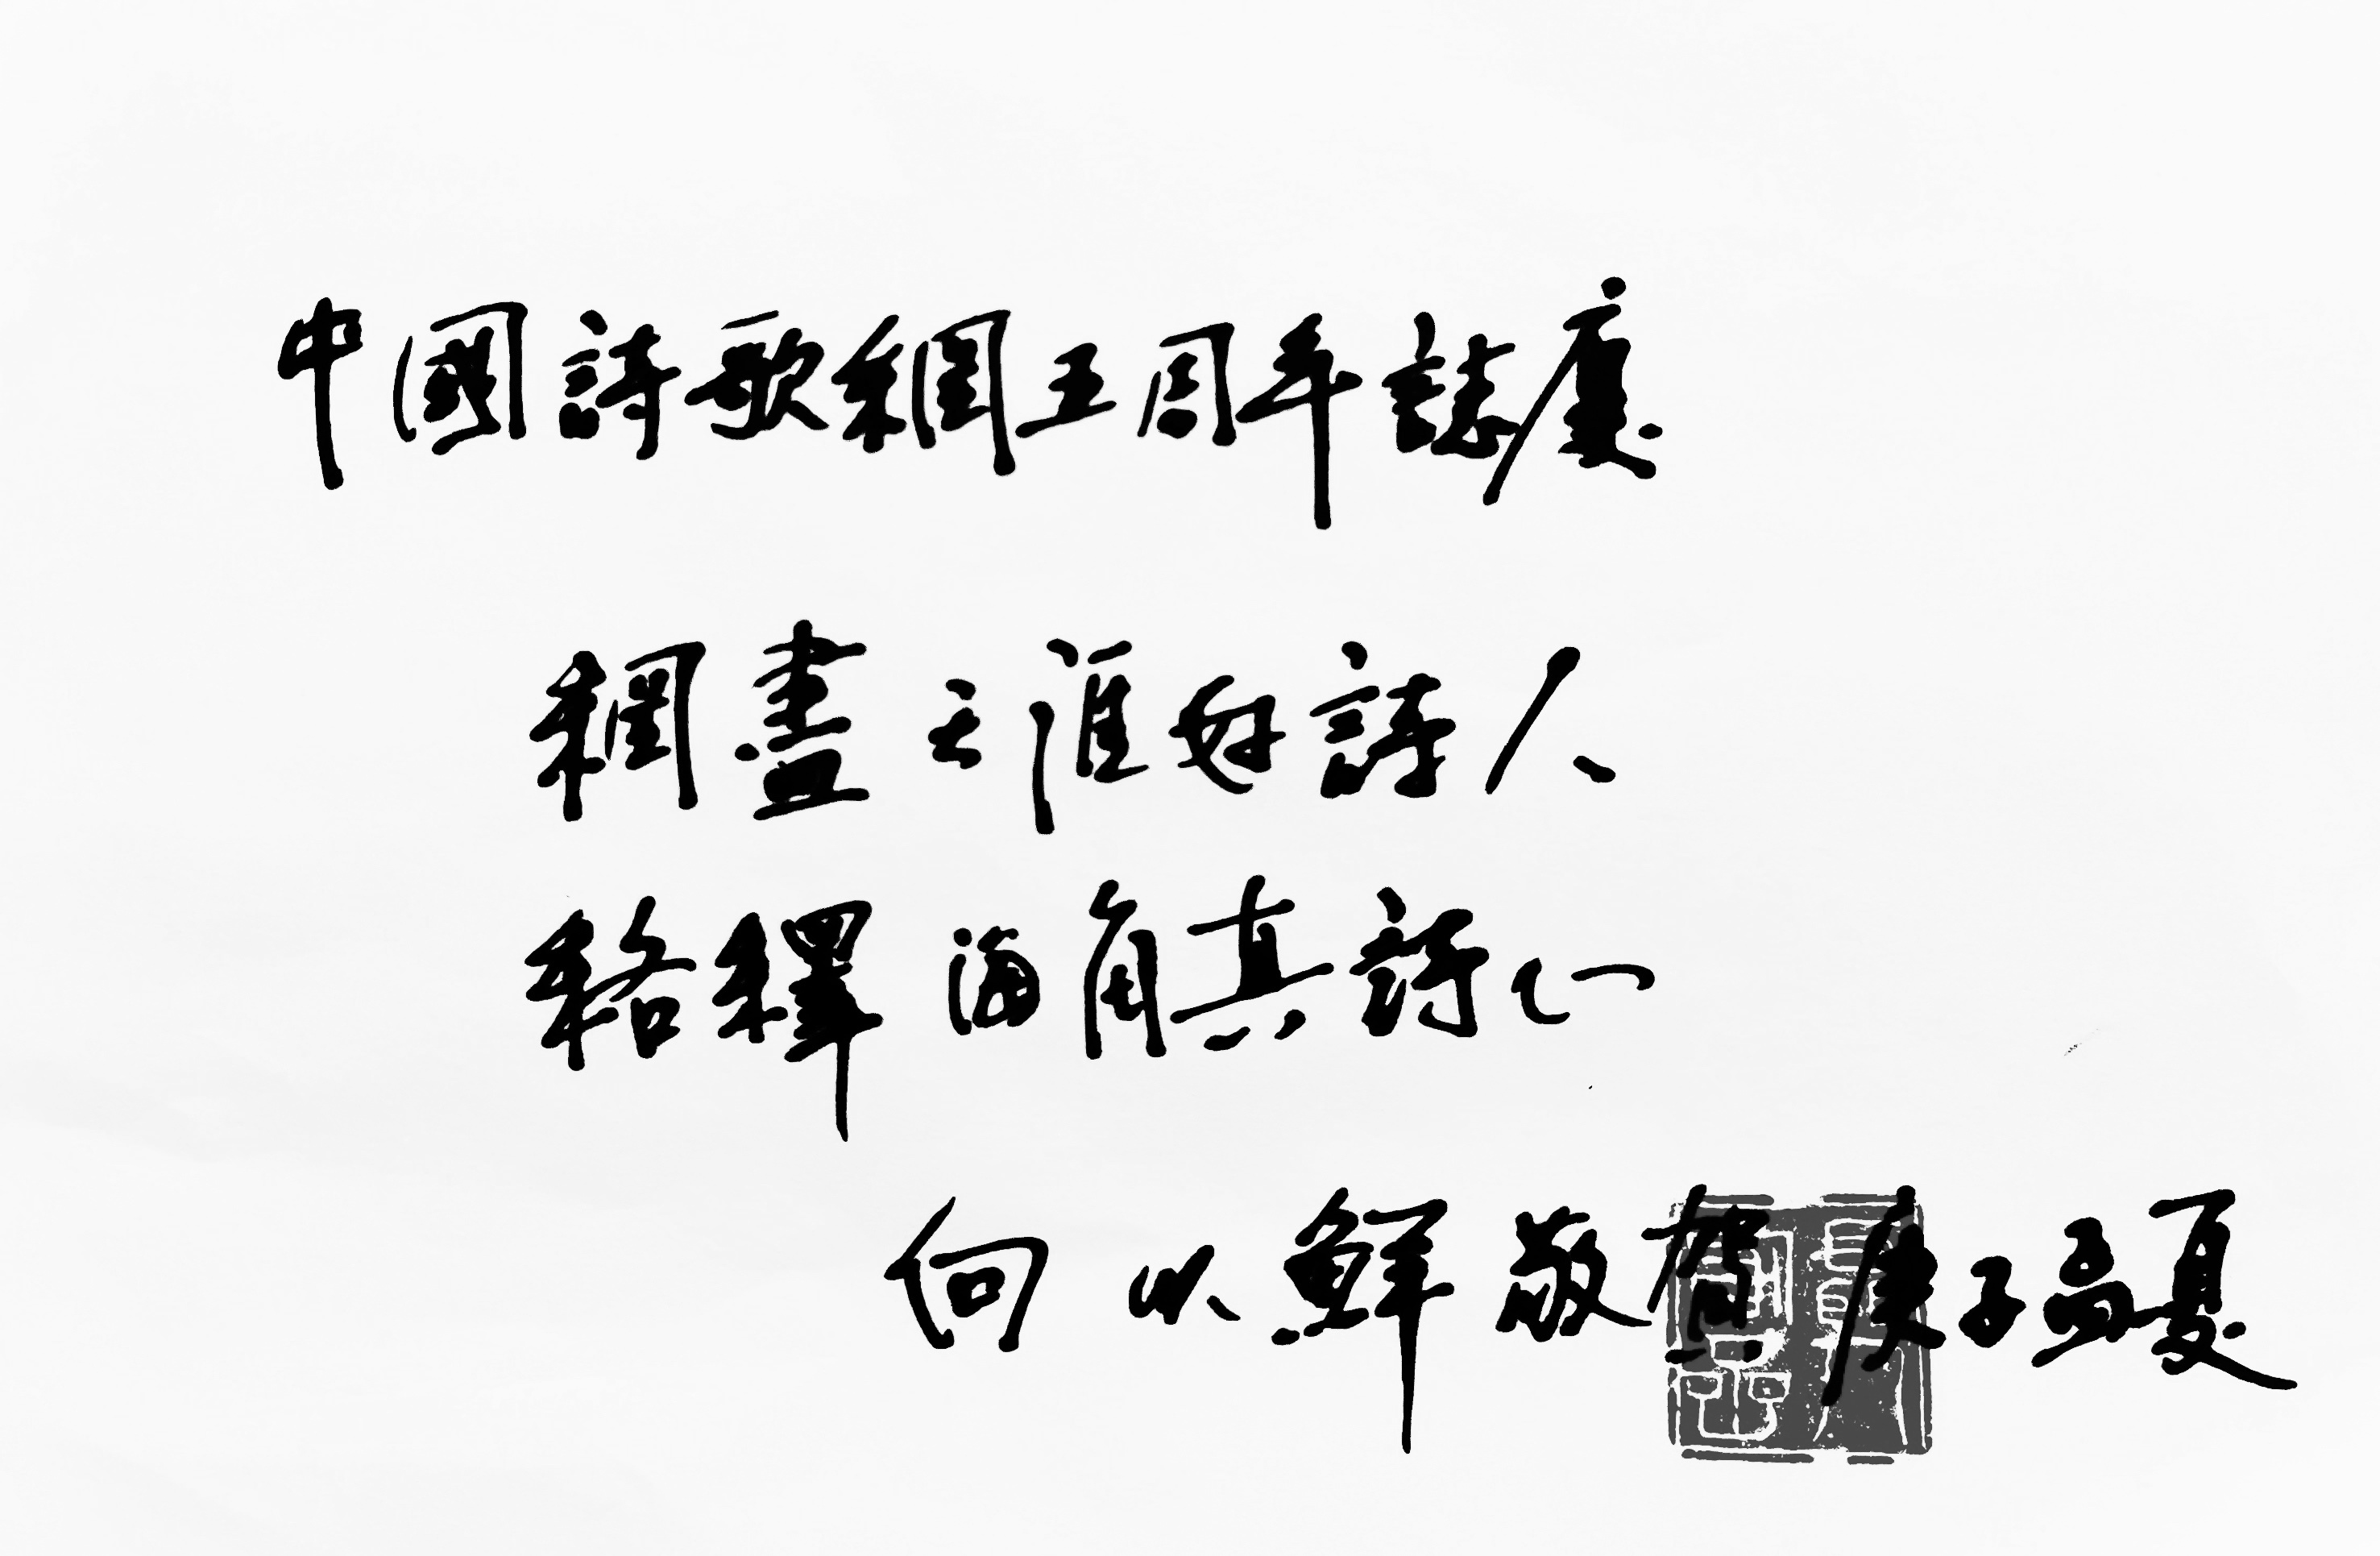 中國詩歌網五周年誌慶
網盡天涯好詩人
絡繹海角真詩心
何以鮮敬賀庚子夏